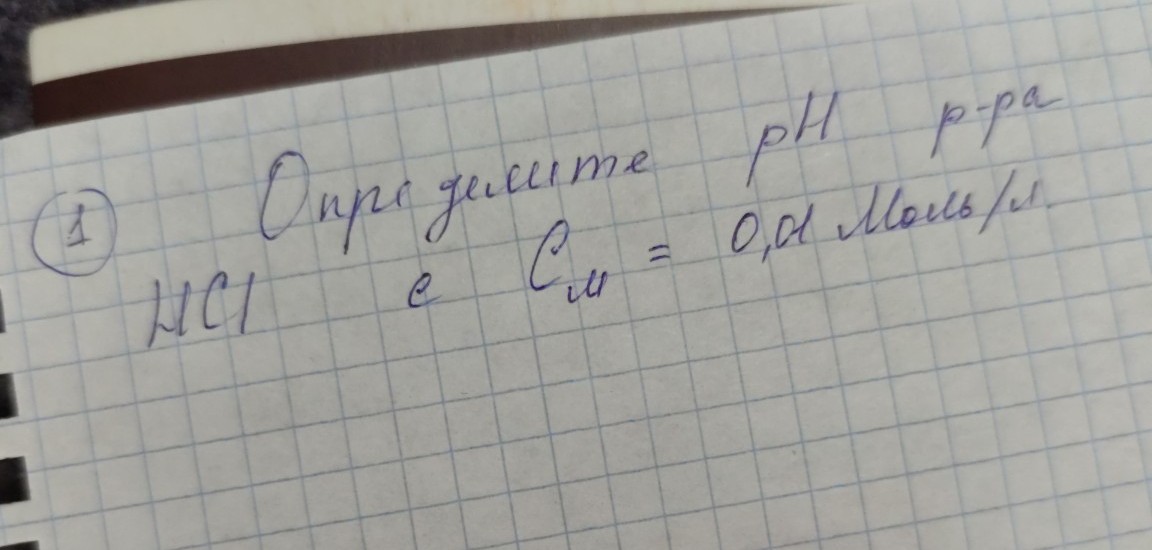 1 Определите pH р-ра
HCl с Cм = 0,01 Моль/л.